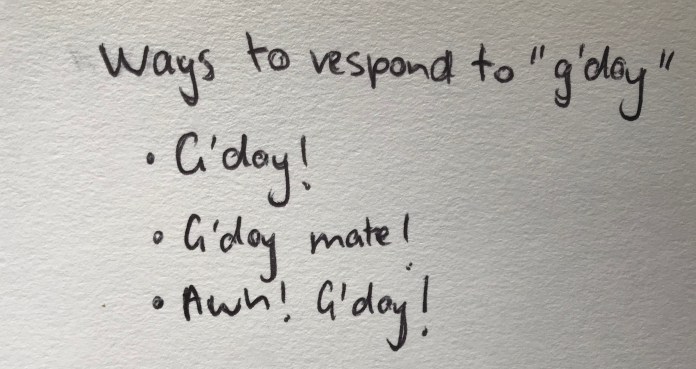 Ways to respond to "g'day"
• G'day!
• G'day mate!
• Awh! G'day!